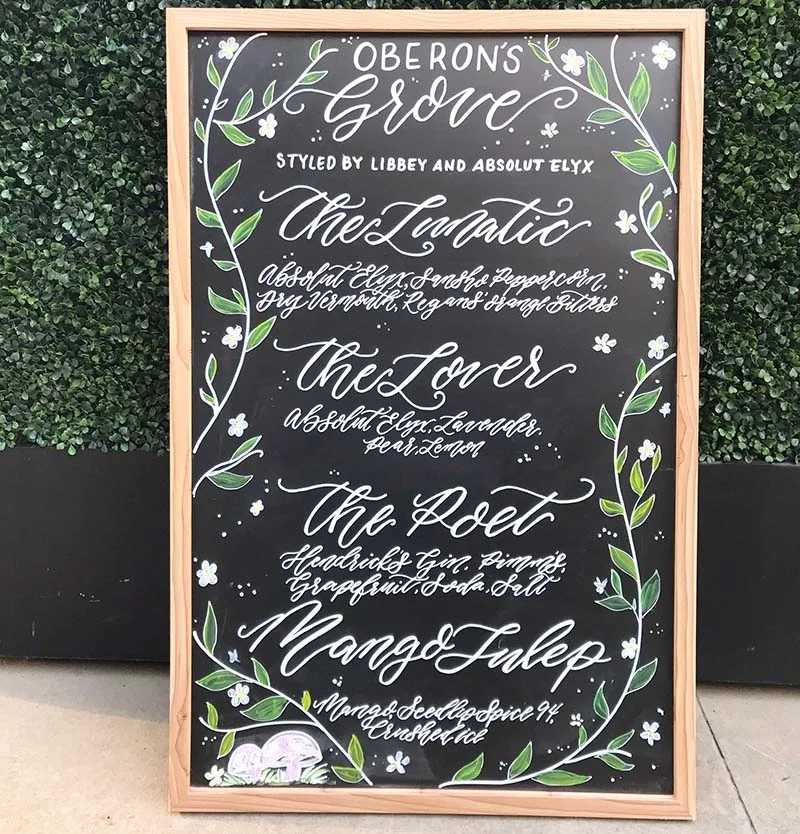 OBERON'S
Grove
STYLED BY LIBBEY AND ABSOLUT ELYX
The Lunatic
Absolut Elyx, Sansho Peppercorn,
Dry Vermouth, Regans' Orange Bitters
The Lover
Absolut Elyx, Lavender,
Pear, Lemon
The Poet
Hendrick's Gin, Pimm's,
Grapefruit, Soda, Salt
Mango Julep
Mango, Seedlip Spice 94,
Crushed ice